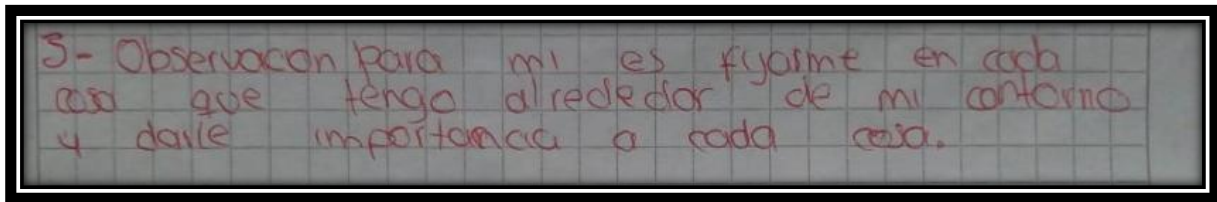 3- Observacion para mi es fijarme en cada
cosa que tengo alrededor de mi contorno
y darle importancia a cada cosa.